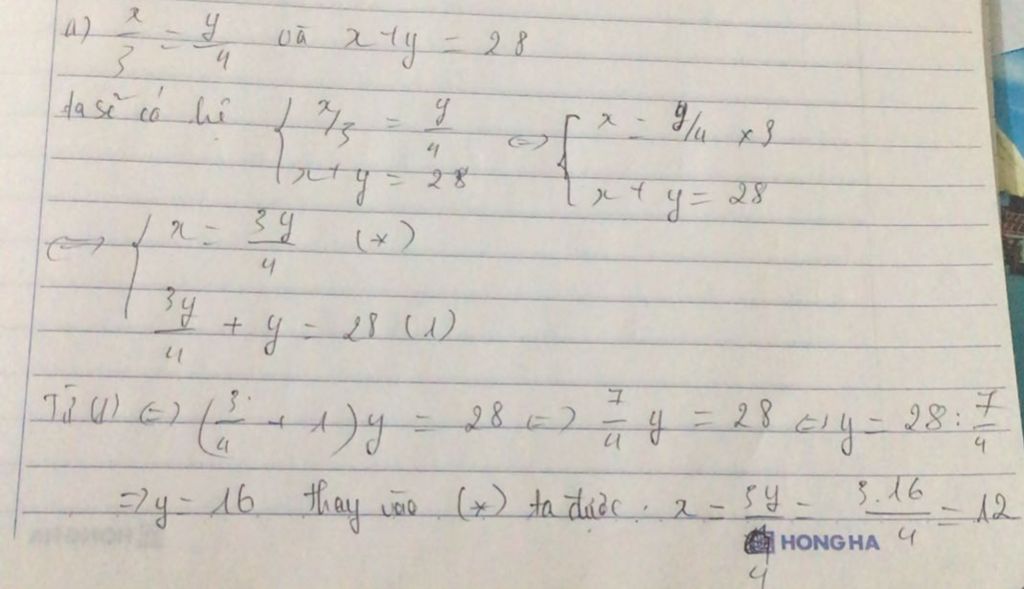 a) x/3 = y/4 và x+y = 28
ta sẽ có hệ { x/3 = y/4 ⇔ { x = y/4 x 3
x+y = 28 x + y = 28
⇔ { x = 3y/4 (*)
3y/4 + y = 28 (1)
Từ (1) ⇔ (3/4 + 1)y = 28 ⇔ 7/4 y = 28 ⇔ y = 28 : 7/4
⇒ y = 16 thay vào (*) ta được. x = 3y/4 = 3.16/4 = 12
HONG HA